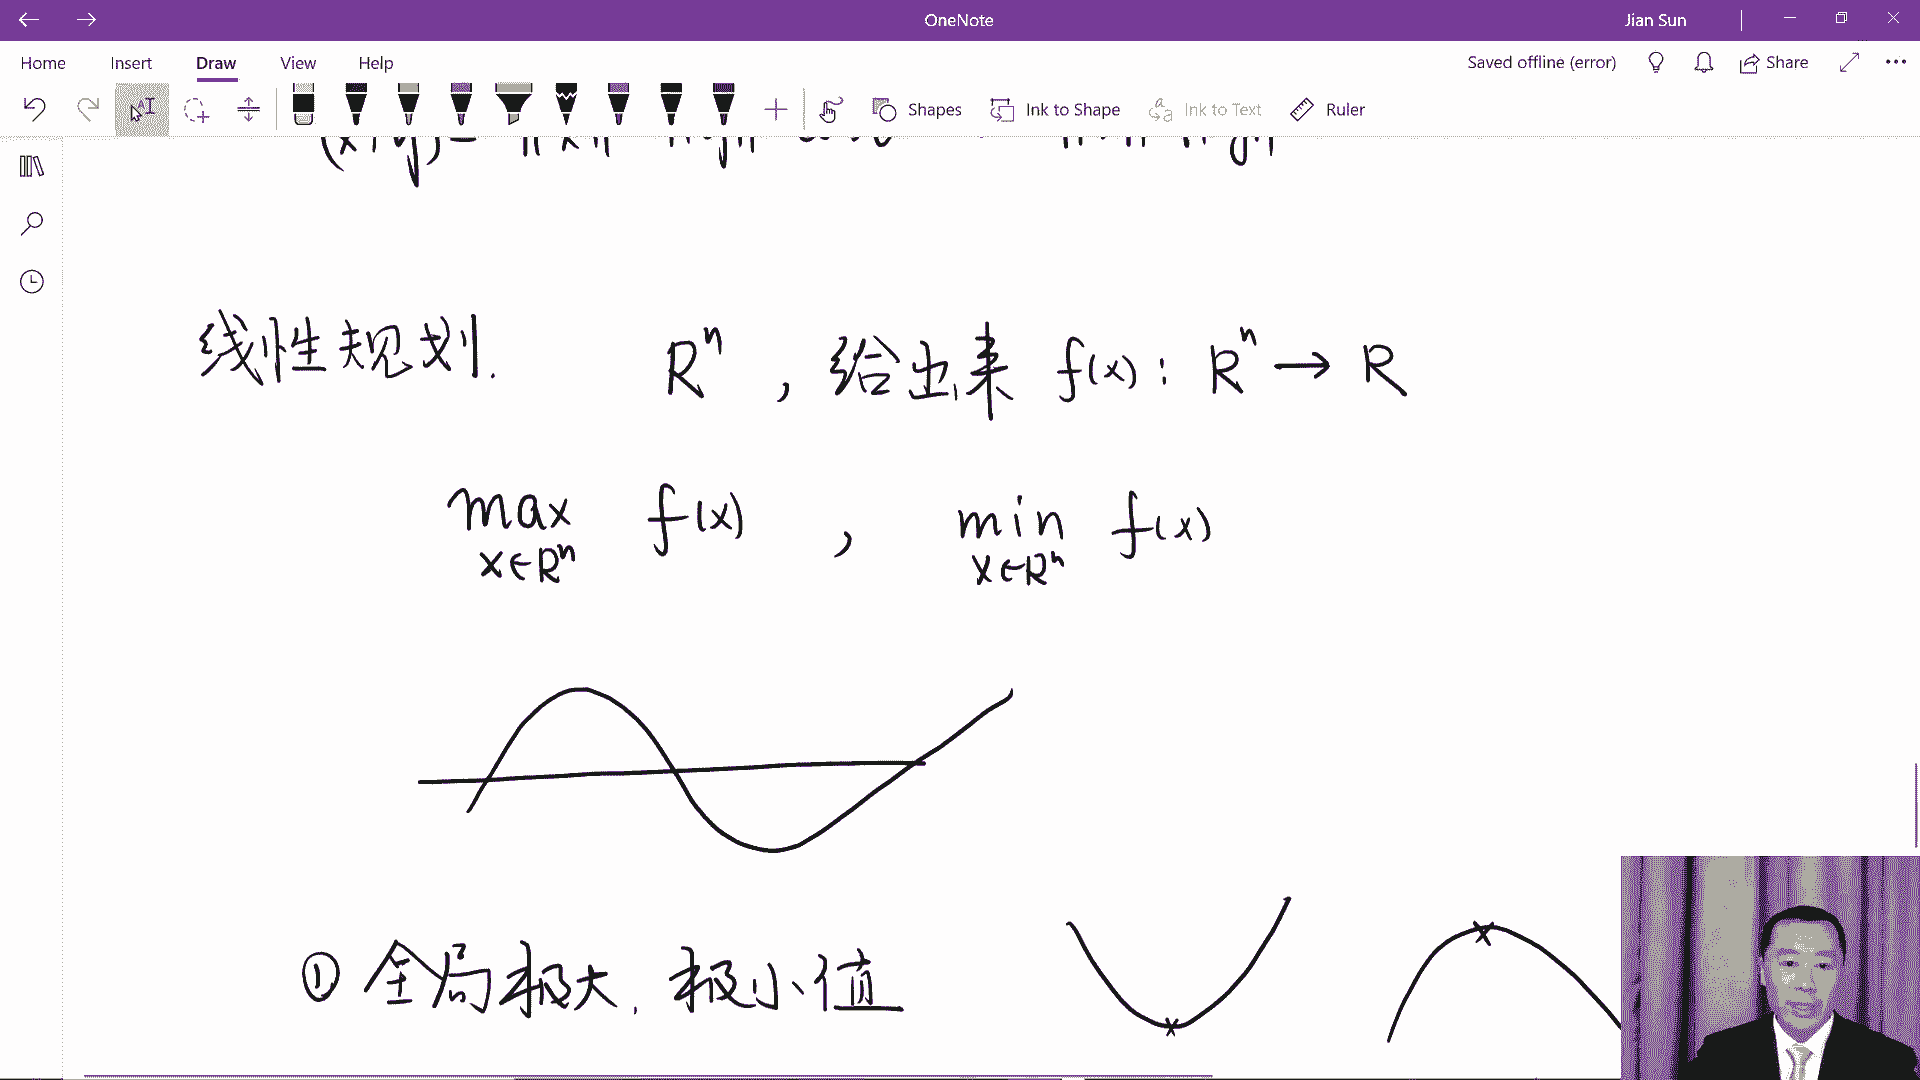 OneNote
Jian Sun
Home Insert Draw View Help
Saved offline (error) Share
Shapes Ink to Shape Ink to Text Ruler
线性规划. Rⁿ , 给出来 f(x) : Rⁿ → R
max f(x) , min f(x)
x∈Rⁿ x∈Rⁿ
① 全局极大, 极小值